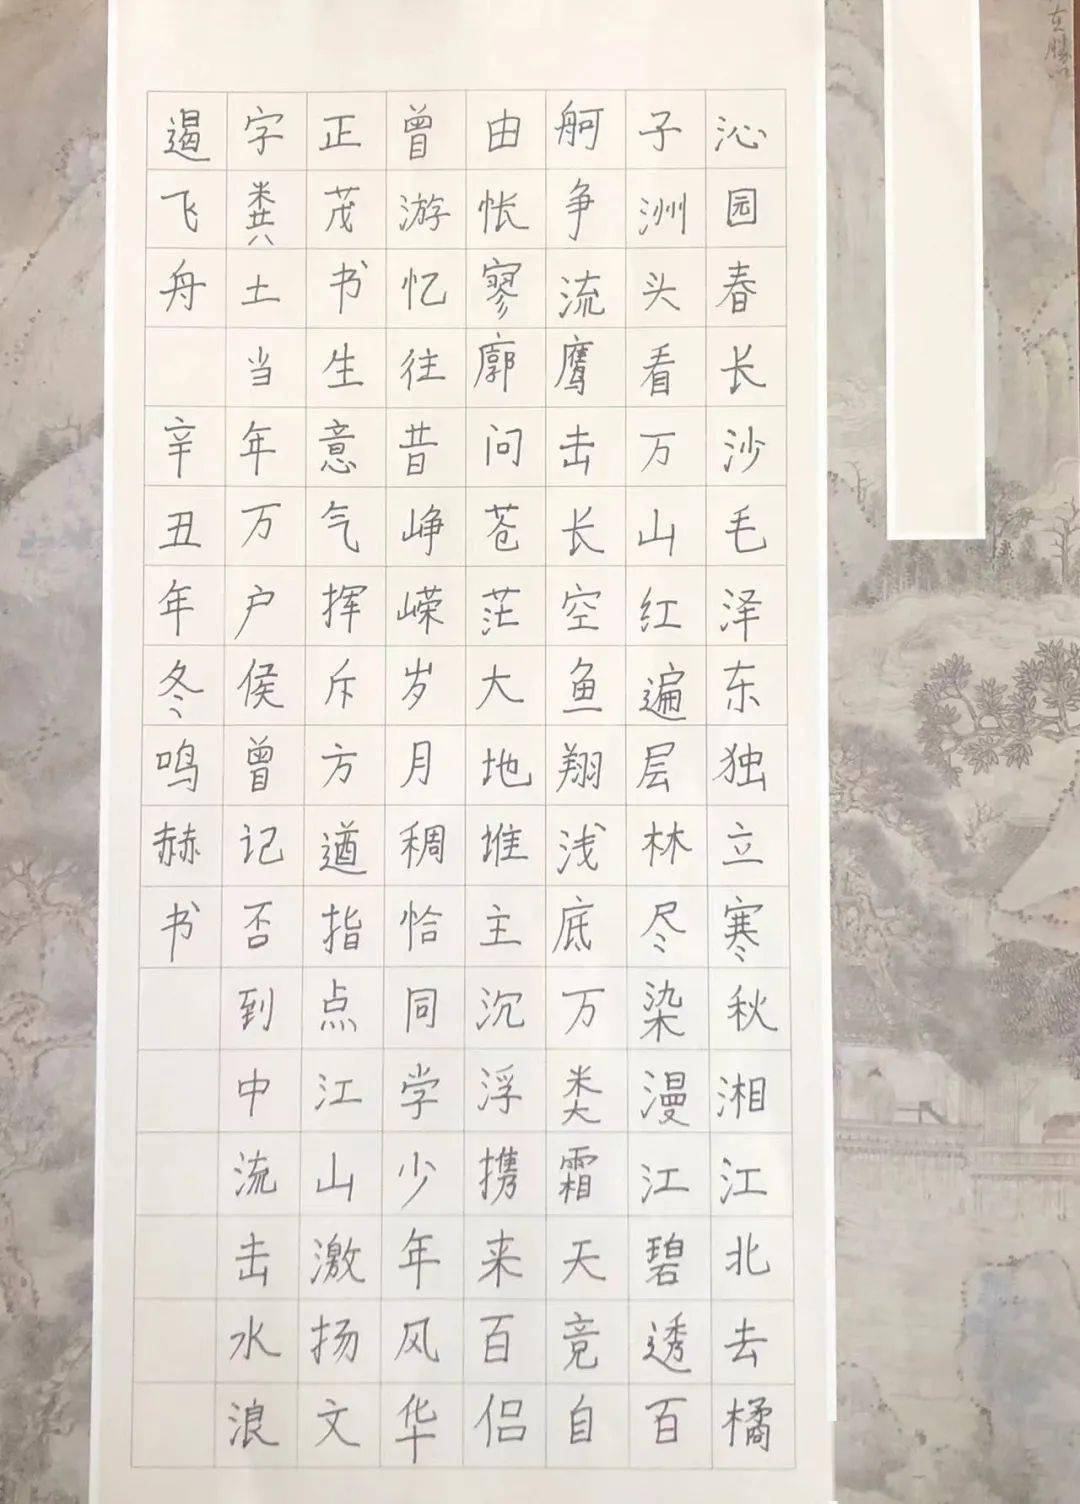 沁园春长沙毛泽东独立寒秋湘江北去橘
子洲头看万山红遍层林尽染漫江碧透百
舸争流鹰击长空鱼翔浅底万类霜天竟自
由怅寥廓问苍茫大地堆主沉浮携来百侣
曾游忆往昔峥嵘岁月稠恰同学少年风华
正茂书生意气挥斥方遒指点江山激扬文
字粪土当年万户侯曾记否到中流击水浪
遏飞舟 辛丑年冬鸣赫书